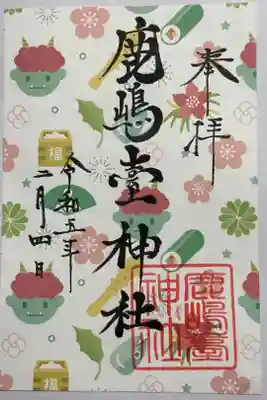 奉拝
鹿嶋臺神社
令和五年
二月四日
鹿嶋臺
神社
福
福
福